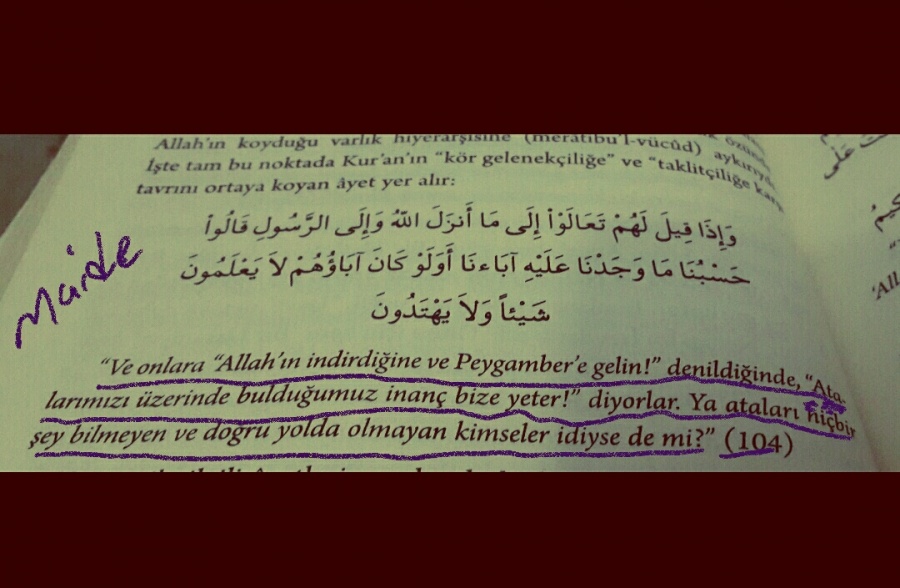 Allah'ın koyduğu varlık hiyerarşisine (merâtibu'l-vücûd) aykırıydı.
İşte tam bu noktada Kur'an'ın “kör gelenekçiliğe” ve “taklitçiliğe karşı
tavrını ortaya koyan âyet yer alır:
وَإِذَا قِيلَ لَهُمْ تَعَالَوْاْ إِلَى مَا أَنزَلَ اللّهُ وَإِلَى الرَّسُولِ قَالُواْ
حَسْبُنَا مَا وَجَدْنَا عَلَيْهِ آبَاءنَا أَوَلَوْ كَانَ آبَاؤُهُمْ لاَ يَعْلَمُونَ
شَيْئاً وَلاَ يَهْتَدُونَ
Maide
“Ve onlara “Allah'ın indirdiğine ve Peygamber'e gelin!” denildiğinde, “Ata-
larımızı üzerinde bulduğumuz inanç bize yeter!” diyorlar. Ya ataları hiçbir
şey bilmeyen ve doğru yolda olmayan kimseler idiyse de mi?” (104)